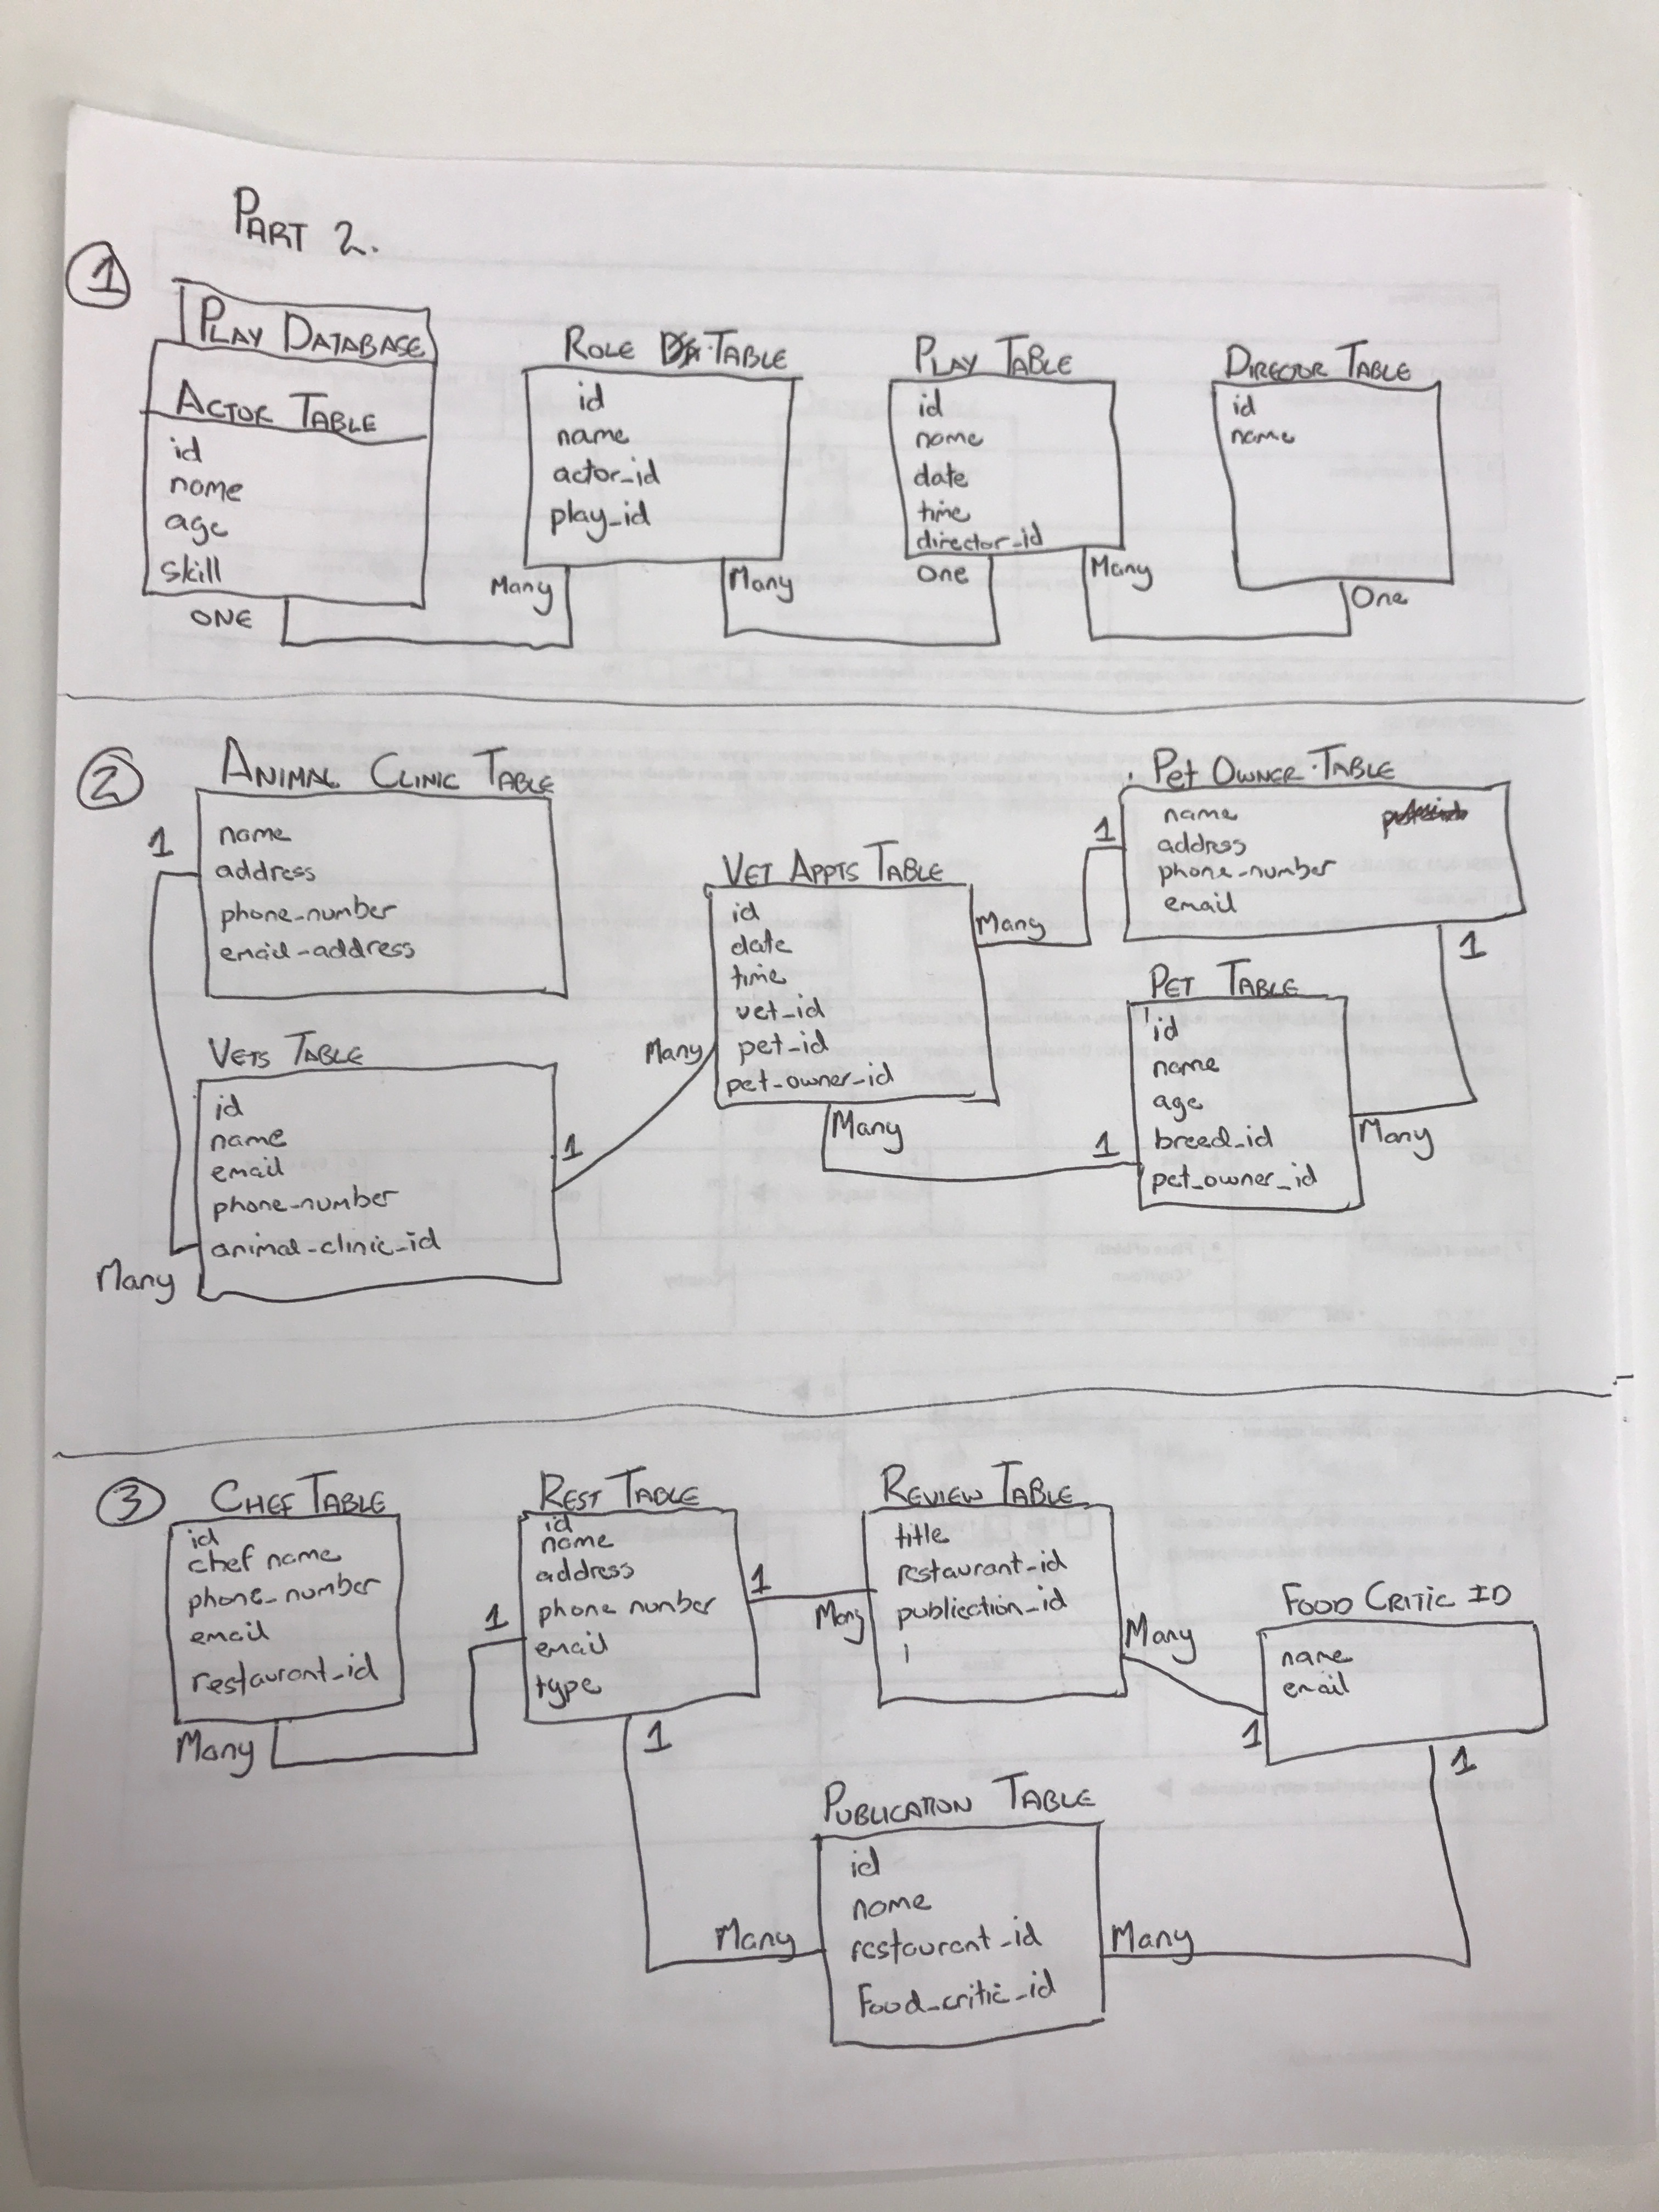 PART 2.
1
PLAY DATABASE
ACTOR TABLE
id
name
age
skill
ONE
ROLE TABLE
id
name
actor_id
play_id
Many
Many
PLAY TABLE
id
name
date
time
director_id
One
Many
DIRECTOR TABLE
id
name
One
2
ANIMAL CLINIC TABLE
1
name
address
phone_number
email-address
VETS TABLE
id
name
email
phone-number
animal-clinic_id
Many
1
VET APPTS TABLE
id
date
time
vet_id
pet_id
pet_owner_id
Many
Many
Many
Pet OWNER TABLE
1
name
address
phone_number
email
1
PET TABLE
id
name
age
breed_id
pet_owner_id
1
Many
3
CHEF TABLE
id
chef name
phone_number
email
restaurant_id
Many
REST TABLE
id
name
address
phone number
email
type
1
1
1
REVIEW TABLE
title
restaurant_id
publication_id
Many
Many
FOOD CRITIC ID
name
email
1
1
PUBLICATION TABLE
id
name
restaurant_id
Food_critic_id
Many
Many